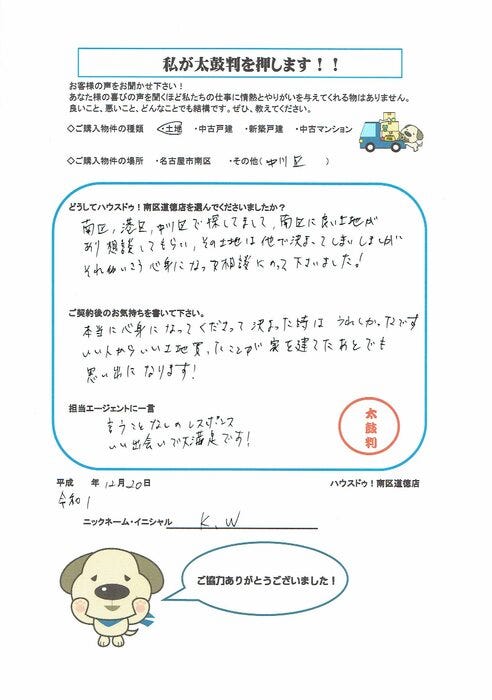 私が太鼓判を押します！！
お客様の声をお聞かせ下さい！
あなた様の喜びの声を聞くほど私たちの仕事に情熱とやりがいを与えてくれる物はありません。
良いこと、悪いこと、どんなことでも結構です。ぜひ、教えてください。
◇ご購入物件の種類 ・土地 ・中古戸建 ・新築戸建 ・中古マンション
◇ご購入物件の場所 ・名古屋市南区 ・その他(中川区)
どうしてハウスドゥ！南区道徳店を選んでくださいましたか？
南区,港区,中川区で探してまして,南区に良い土地が
あり相談してもらい,その土地は他で決まってしまいましたが
それ以いこう心身になって相談にのって下さいました!
ご契約後のお気持ちを書いて下さい。
本当に心身になってくださって決まった時はうれしかったです
いい人からいい土地買ったことが家を建てたあとでも
思い出になります!
担当エージェントに一言
言うことなしのレスポンス
いい出会いで大満足です!
太鼓判
平成 年 12月20日 ハウスドゥ！南区道徳店
令和1
ニックネーム・イニシャル K.W
ご協力ありがとうございました！